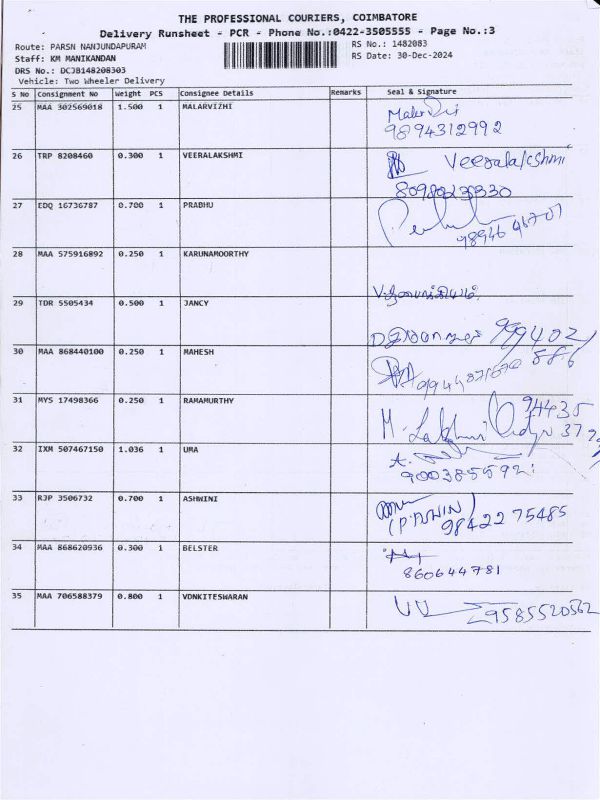 THE PROFESSIONAL COURIERS, COIMBATORE
Delivery Runsheet - PCR - Phone No.:0422-3505555 - Page No.:3
Route: PARSN NANJUNDAPURAM
RS No.: 1482083
Staff: KM MANIKANDAN
RS Date: 30-Dec-2024
DRS No.: DCJB148208303
Vehicle: Two Wheeler Delivery
S No Consignment No Weight PCS Consignee Details Remarks Seal & Signature
25 MAA 302569018 1.500 1 MALARVIZHI
9894312992
26 TRP 8208460 0.300 1 VEERALAKSHMI Veeralakshmi
27 EDQ 16736787 0.700 1 PRABHU
28 MAA 575916892 0.250 1 KARUNAMOORTHY
29 TDR 5505434 0.500 1 JANCY
30 MAA 868440100 0.250 1 MAHESH
31 MYS 17498366 0.250 1 RAMAMURTHY
32 IXM 507467150 1.036 1 UMA
33 RJP 3506732 0.700 1 ASHWINI
98422 75485
34 MAA 868620936 0.300 1 BELSTER
860644781
35 MAA 706588379 0.800 1 VONKITESWARAN
9585520562